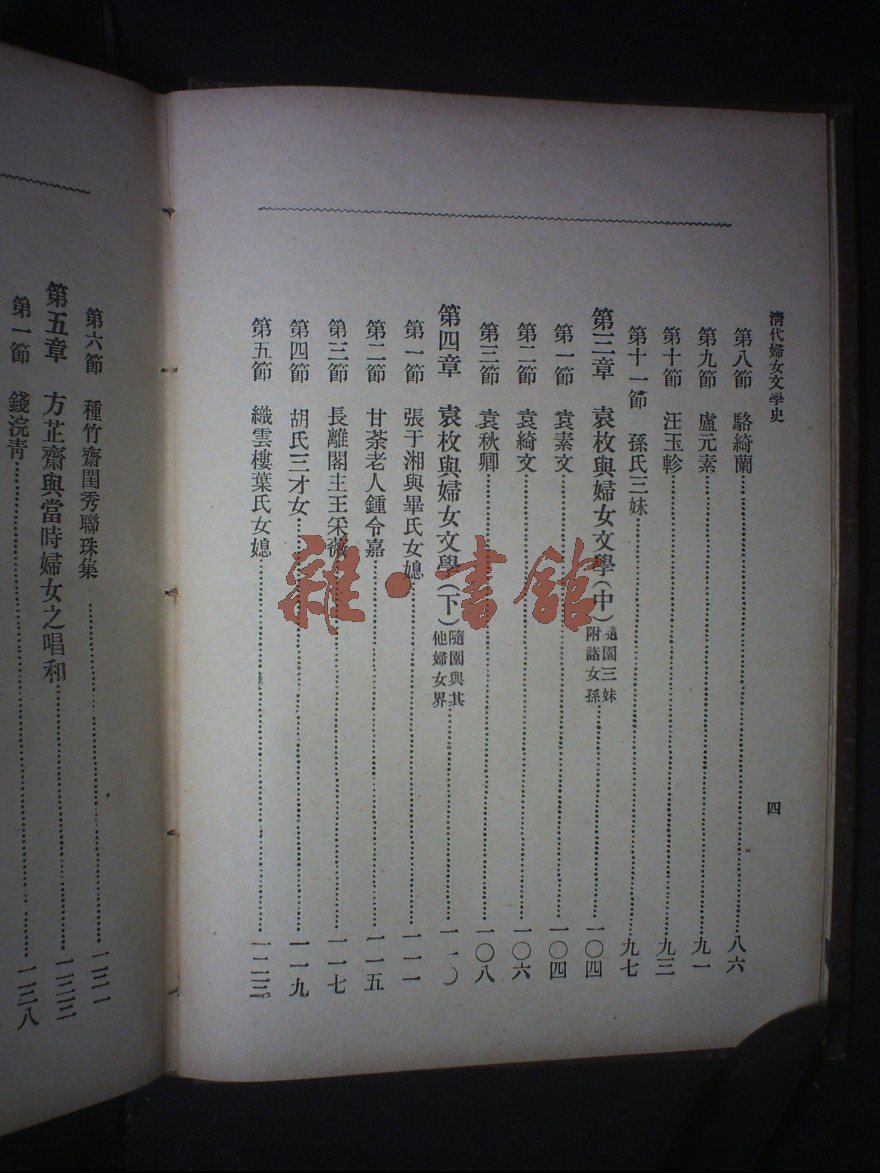 清代婦女文學史
四
第八節 駱綺蘭…………八六
第九節 盧元素…………九一
第十節 汪玉軫…………九三
第十一節 孫氏三妹…………九七
第三章 袁枚與婦女文學(中)隨園三妹附諸女孫…………一〇四
第一節 袁素文…………一〇四
第二節 袁綺文…………一〇六
第三節 袁秋卿…………一〇八
第四章 袁枚與婦女文學(下)隨園與其他婦女界…………一一〇
第一節 張于湘與畢氏女媳…………一一一
第二節 甘荼老人鍾令嘉…………一一五
第三節 長離閣主王采薇…………一一七
第四節 胡氏三才女…………一一九
第五節 織雲樓葉氏女媳…………一二三
第六節 種竹齋閨秀聯珠集…………一三一
第五章 方芷齋與當時婦女之唱和…………一三三
第一節 錢浣青…………一三八
雜·書館